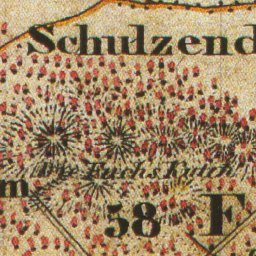 Schulzend
Die Fuchs Kuten
m
58 F